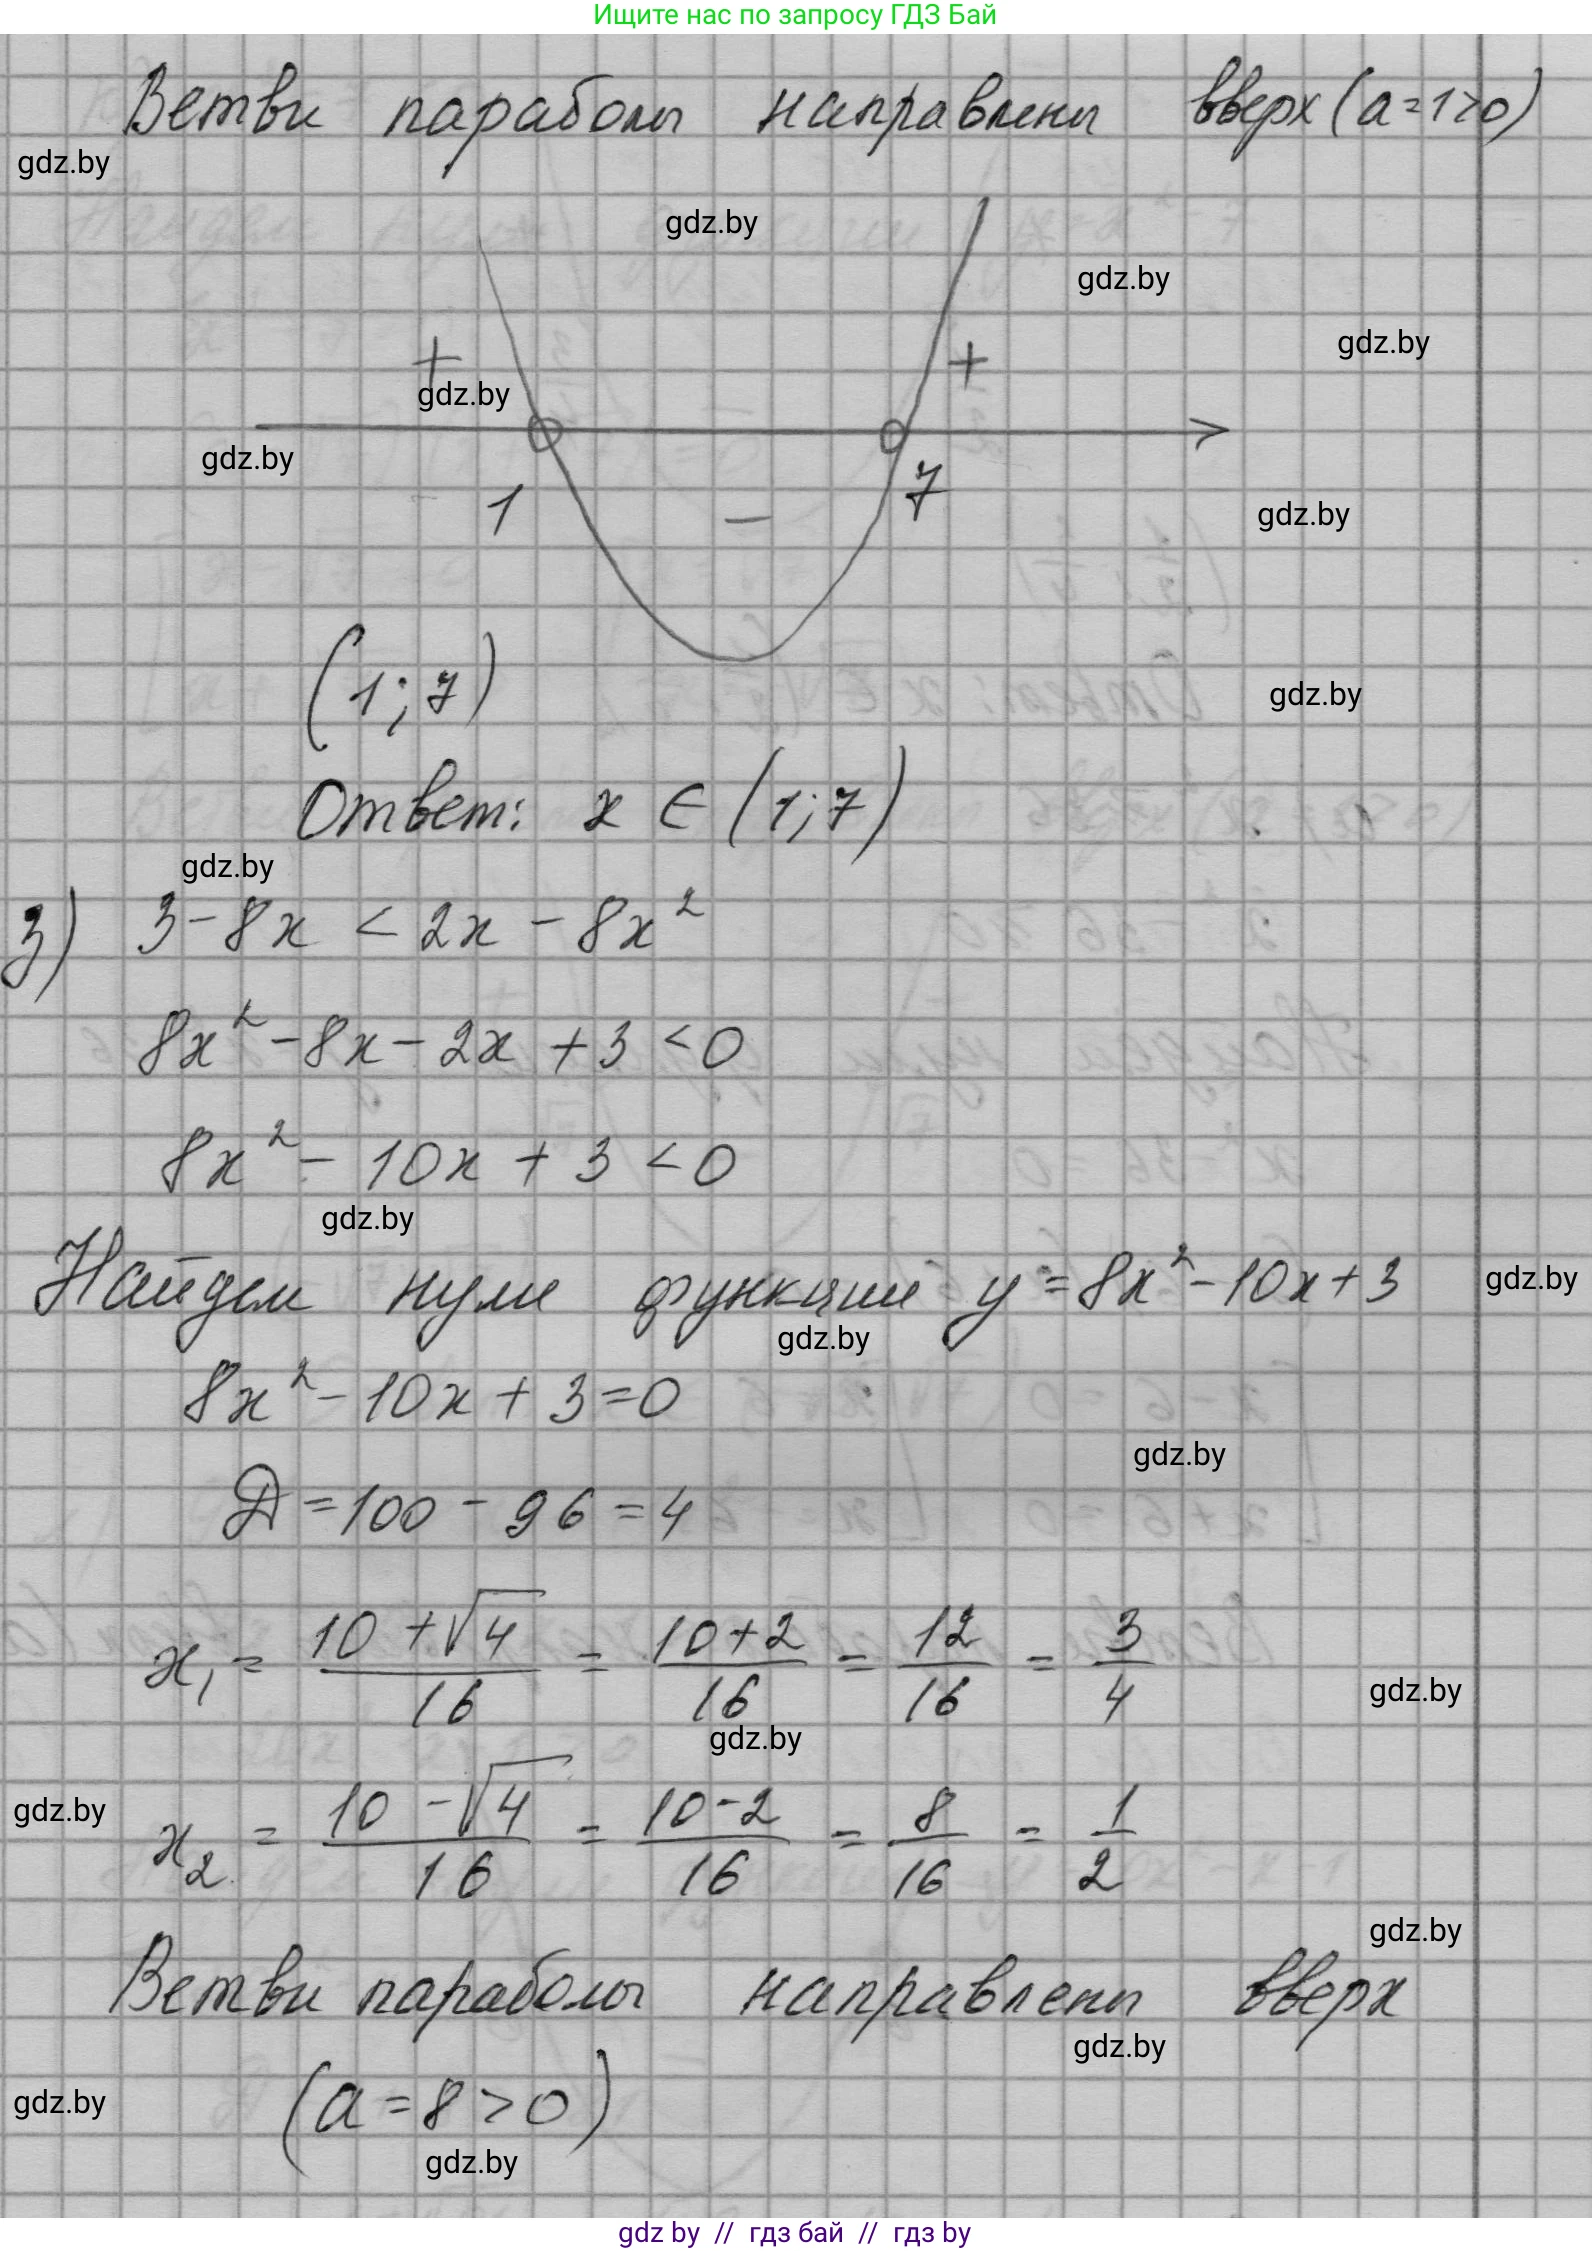 Ищите нас по запросу ГДЗ Бай
Ветви параболы направлены вверх (a=1>0)
gdz.by
gdz.by
gdz.by
gdz.by
+ +
gdz.by
gdz.by
1 − 7
gdz.by
(1;7)
gdz.by
Ответ: x ∈ (1;7)
gdz.by
3) 3-8x < 2x - 8x²
8x² - 8x - 2x + 3 < 0
8x² - 10x + 3 < 0
gdz.by
Найдем нули функции y = 8x² - 10x + 3
gdz.by
gdz.by
8x² - 10x + 3 = 0
gdz.by
Д = 100 - 96 = 4
x₁ = (10 + √4)/16 = (10+2)/16 = 12/16 = 3/4
gdz.by
gdz.by
gdz.by
x₂ = (10 - √4)/16 = (10-2)/16 = 8/16 = 1/2
gdz.by
Ветви параболы направлены вверх
gdz.by
gdz.by
(a = 8 > 0)
gdz.by
gdz by // гдз бай // гдз by